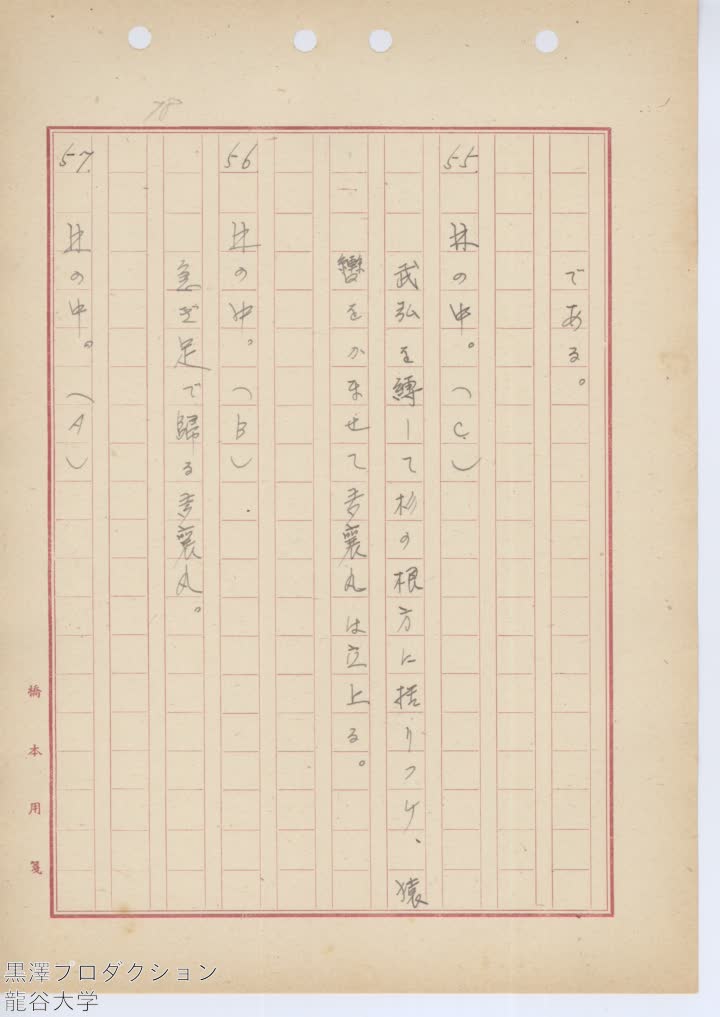 78
である。
55. 林の中。(C)
武弘を縛して杉の根方に括りつけ、猿
轡をかませて多襄丸は立上る。
56. 林の中。(B)
急ぎ足で歸る多襄丸。
57. 林の中。(A)
橋本用箋
黒澤プロダクション
龍谷大学